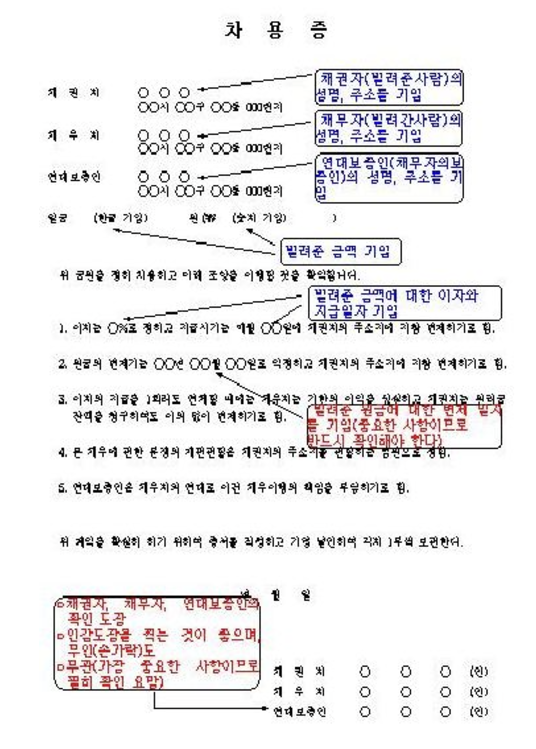 차 용 증
채 권 자 ○ ○ ○
○○시 ○○구 ○○동 000번지
채권자(빌려준사람)의
성명, 주소를 기입
채 무 자 ○ ○ ○
○○시 ○○구 ○○동 000번지
채무자(빌려간사람)의
성명, 주소를 기입
연대보증인 ○ ○ ○
○○시 ○○구 ○○동 000번지
연대보증인(채무자의보
증인)의 성명, 주소를 기
입
일금 (한글 기입) 원(₩ (숫자 기입) )
빌려준 금액 기입
위 금원을 정히 차용하고 아래 조항을 이행할 것을 확약합니다.
빌려준 금액에 대한 이자와
지급일자 기입
1. 이자는 ○%로 정하고 지급시기는 매월 ○○일에 채권자의 주소지에 지참 변제하기로 함.
2. 원금의 변제기는 ○○년 ○○월 ○○일로 약정하고 채권자의 주소지에 지참 변제하기로 함.
3. 이자의 지급을 1회라도 연체할 때에는 채무자는 기한의 이익을 상실하고 채권자는 원리금
잔액을 청구하여도 이의 없이 변제하기로 함.
빌려준 원금에 대한 변제 일자
를 기입(중요한 사항이므로
반드시 확인해야 한다)
4. 본 채무에 관한 분쟁의 재판관할은 채권자의 주소지를 관할하는 법원으로 정함.
5. 연대보증인은 채무자와 연대로 이건 채무이행의 책임을 부담하기로 함.
위 계약을 확실히 하기 위하여 증서를 작성하고 기명 날인하여 각자 1부씩 보관한다.
년 월 일
○채권자, 채무자, 연대보증인의
확인 도장
○인감도장을 찍는 것이 좋으며,
무인(손가락)도
○무관(가장 중요한 사항이므로
필히 확인 요망)
채 권 자 ○ ○ ○ (인)
채 무 자 ○ ○ ○ (인)
연대보증인 ○ ○ ○ (인)